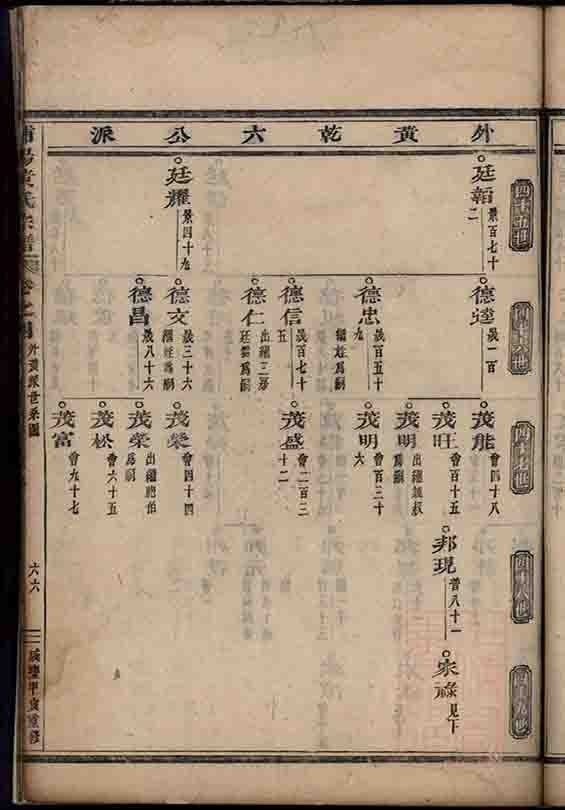 外黄乾六公派
四十五世
廷韜 景百七十二
廷耀 景四十九
四十六世
德達 晟一百
德忠 晟百五十九 繼姪爲嗣
德信 晟百七十五
德仁 出繼三房廷雲爲嗣
德文 晟三十六 繼姪爲嗣
德昌 晟八十六
四十七世
茂能 會四十八
茂旺 會百十五
茂明 出繼親叔爲嗣
茂明 會百三十六
茂盛 會二百三十二
茂榮 會四十四
茂榮 出繼胞伯爲嗣
茂松 會六十五
茂富 會九十七
四十八世
邦現 普八十一
四十九世
宋祿 見下
浦陽黄氏宗譜
卷之四
外黄派世系圖
六六
咸豐甲寅重修